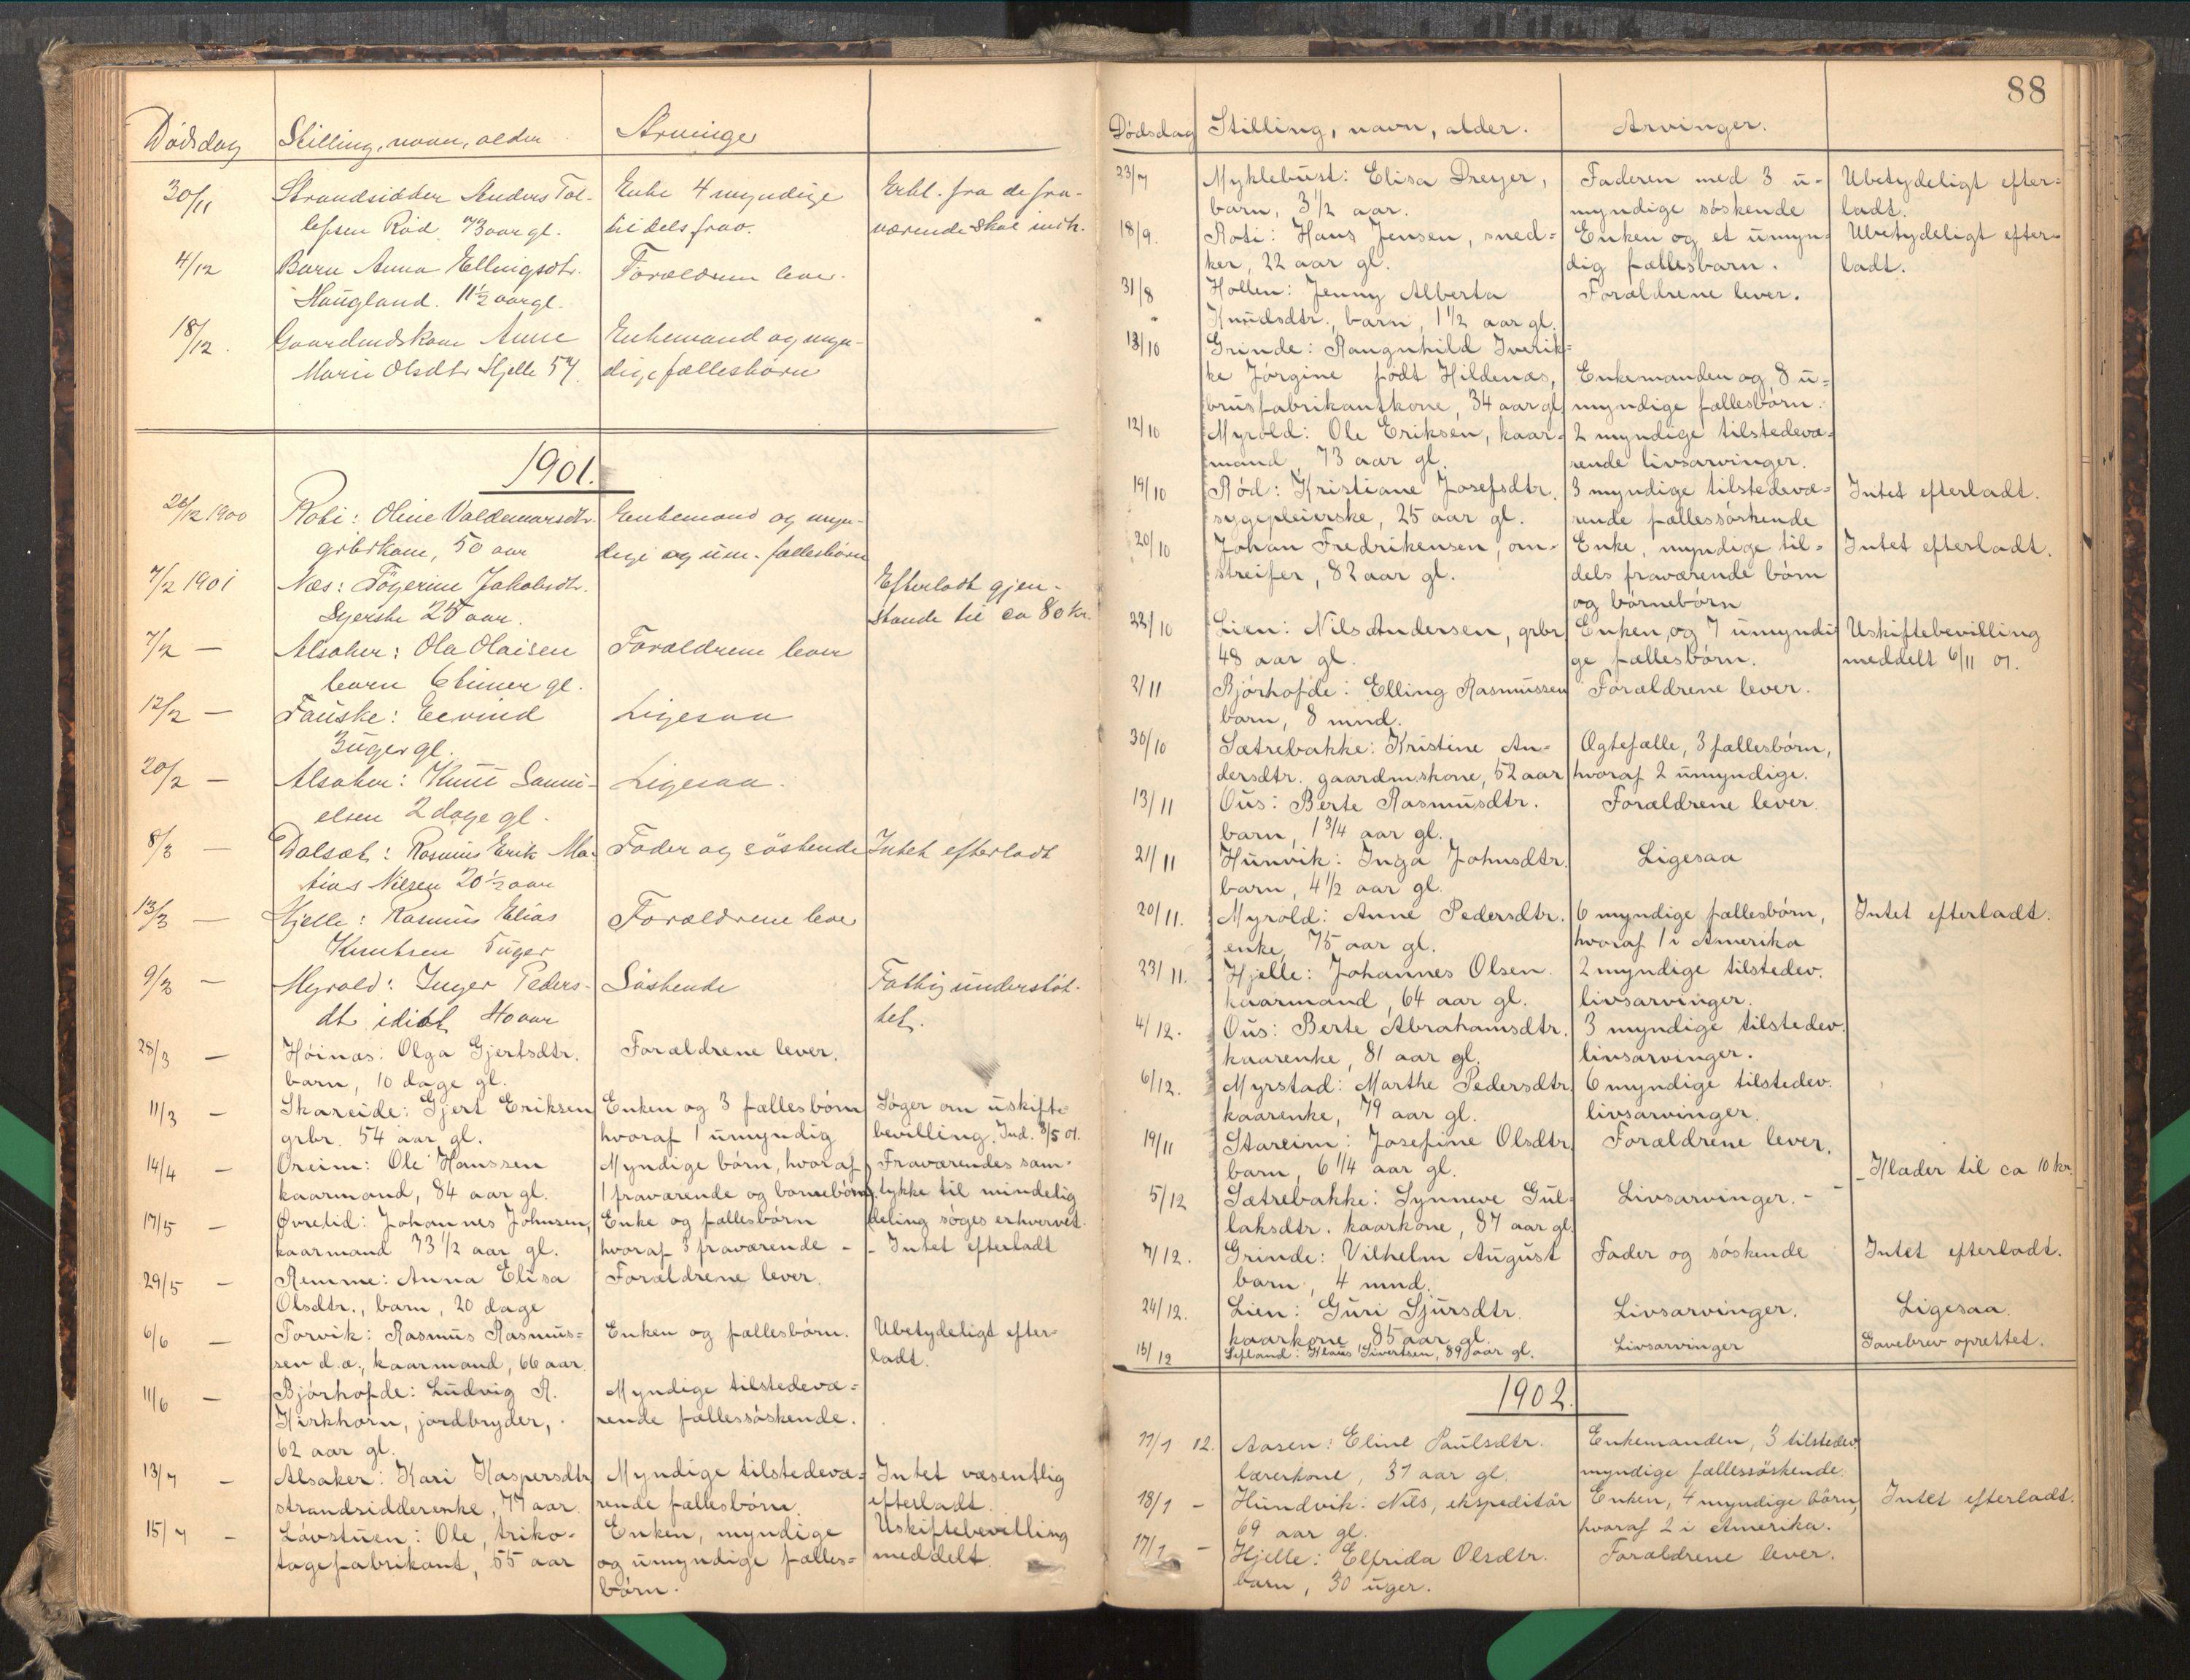 Dødsdag Stilling, navn, alder Arvinger
30/11 Strandsidder Anders Tol- Enke 4 myndige Erkl. fra de fra-
lefsen Rød 73 aar gl. tildels frav. værende skal indh.
4/12 Barn Anna Ellingsdtr. Forældrene lever.
Haugland. 11½ aar gl.
18/12. Gaardmdskone Anne Enkemand og myn-
Marie Olsdtr Hjelle 54. dige fællesbørn
1901.
20/12 1900 Roti: Oline Valdemarsdtr. Enkemand og myn-
grbrkone, 50 aar dige og um. fællesbørn
7/2 1901 Næs: Tøgerine Jakobsdtr. Efterladt gjen-
Syerske 25 aar. stande til ca 80 kr.
7/2 — Alsaker: Ola Olaisen Forældrene lever
barn 6 timer gl.
12/2 — Fauske: Eevind Ligesaa
3 uger gl.
20/2 — Alsaker: Knut Samu- Ligesaa.
elsen 2 dage gl.
8/3 — Dalsæt: Rasmus Erik Ma- Fader og søskende Intet efterladt
tias Nilsen 20½ aar
13/3 — Hjelle: Rasmus Elias Forældrene lever
Knutsen 5 uger
9/3 — Myrold: Inger Peders- Søskende Fattigunderstøt-
dt idiot 40 aar tet.
28/3 — Høinæs: Olga Gjertsdtr. Forældrene lever.
barn, 10 dage gl.
11/3 — Skareide: Gjert Eriksen Enken og 3 fællesbørn Søger om uskifte-
grbr. 54 aar gl. hvoraf 1 umyndig bevilling. Ind. 8/5 01.
14/4 — Oreim: Ole Hanssen Myndige børn, hvoraf Fraværendes sam-
kaarmand, 84 aar gl. 1 fraværende og børnebørn. tykke til mindelig
17/5 — Øvretid: Johannes Johnsen, Enke og fællesbørn deling søges erhvervet.
kaarmand 73½ aar gl. hvoraf 3 fraværende - - Intet efterladt
29/5 — Remme: Anna Elisa Forældrene lever.
Olsdtr., barn, 20 dage
6/6 — Torvik: Rasmus Rasmus= Enken og fællesbørn. Ubetydeligt efter-
sen d.æ., kaarmand, 66 aar. ladt.
11/6 — Bjørhofde: Ludvig R. Myndige tilstedevæ=
Kirkhorn, jordbryder, rende fællessøskende.
62 aar gl.
13/7 - Alsaker: Kari Kaspersdtr Myndige tilstedevæ= Intet væsentlig
strandsidderenke, 77 aar rende fællesbørn efterladt.
15/7 - Løvstuen: Ole, triko- Enken, myndige Uskiftebevilling
tagefabrikant, 55 aar og umyndige fælles= meddelt.
børn.
88
Dødsdag Stilling, navn, alder. Arvinger.
23/7 Myklebust: Elisa Dreyer, Faderen med 3 u- Ubetydeligt efter=
barn, 3½ aar. myndige søskende ladt.
18/9. Roti: Hans Jensen, sned= Enken og et umyn= Ubetydeligt efter-
ker, 22 aar gl. dig fællesbarn. ladt.
31/8 Hollen: Jenny Alberta Forældrene lever.
Knudsdtr., barn, 1½ aar gl.
13/10 Grinde: Raugnhild Iverik=
ke Jørgine født Hildenæs, Enkemanden og 8 u=
brusfabrikantkone, 34 aar gl myndige fællesbørn.
12/10 Myrold: Ole Eriksen, kaar- 2 myndige tilstedevæ-
mand, 73 aar gl. rende livsarvinger.
19/10 Rød: Kristiane Josefsdtr. 3 myndige tilstedevæ= Intet efterladt.
sygepleierske, 25 aar gl. rende fællessøskende
20/10 Johan Fredriksen, om- Enke, myndige til= Intet efterladt.
streifer, 82 aar gl. dels fraværende børn
og børnebørn
22/10 Lien: Nils Andersen, grbr Enken, og 7 umyndi Uskiftebevilling
48 aar gl. ge fællesbørn. meddelt 6/11 01.
2/11 Bjørhofde: Elling Rasmussen Forældrene lever.
barn, 8 mnd.
30/10 Sætrebakke: Kristine An- Ægtefælle, 3 fællesbørn,
dersdtr. gaardmskone, 52 aar hvoraf 2 umyndige.
13/11 Ous: Berte Rasmusdtr. Forældrene lever.
barn, 1¾ aar gl.
21/11 Hunvik: Inga Johnsdtr. Ligesaa
barn, 4½ aar gl.
20/11. Myrold: Anne Pedersdtr. 6 myndige fællesbørn, Intet efterladt.
enke, 75 aar gl. hvoraf 1 i Amerika
23/11. Hjelle: Johannes Olsen. 2 myndige tilstedev.
kaarmand, 64 aar gl. livsarvinger.
4/12. Ous: Berte Abrahamsdtr. 3 myndige tilstedev.
kaarenke, 81 aar gl. livsarvinger.
6/12. Myrstad: Marthe Pedersdtr. 6 myndige tilstedev.
kaarenke, 79 aar gl. livsarvinger.
19/11 Stareim: Josefine Olsdtr Forældrene lever.
barn, 6¼ aar gl. - Klæder til ca 10 kr.
5/12 Sætrebakke: Synneve Gul- Livsarvinger. -
laksdtr. kaarkone, 87 aar gl.
7/12. Grinde: Vilhelm August Fader og søskende Intet efterladt.
barn, 4 mnd.
24/12. Lien: Guri Sjursdtr. Livsarvinger. Ligesaa.
kaarkone, 85 aar gl.
15/12 Lefland: Klaus Sivertsen, 89 aar gl. Livsarvinger Gavebrev oprettet.
1902.
11/1 12. Aasen: Eline Paulsdtr. Enkemanden, 3 tilstedev
lærerkone, 37 aar gl. myndige fællessøskende.
18/1 - Hundvik: Nils, ekspeditør Enken, 4 myndige børn, Intet efterladt.
69 aar gl. hvoraf 2 i Amerika.
17/1 - Hjelle: Elfrida Olsdtr. Forældrene lever.
barn, 30 uger.